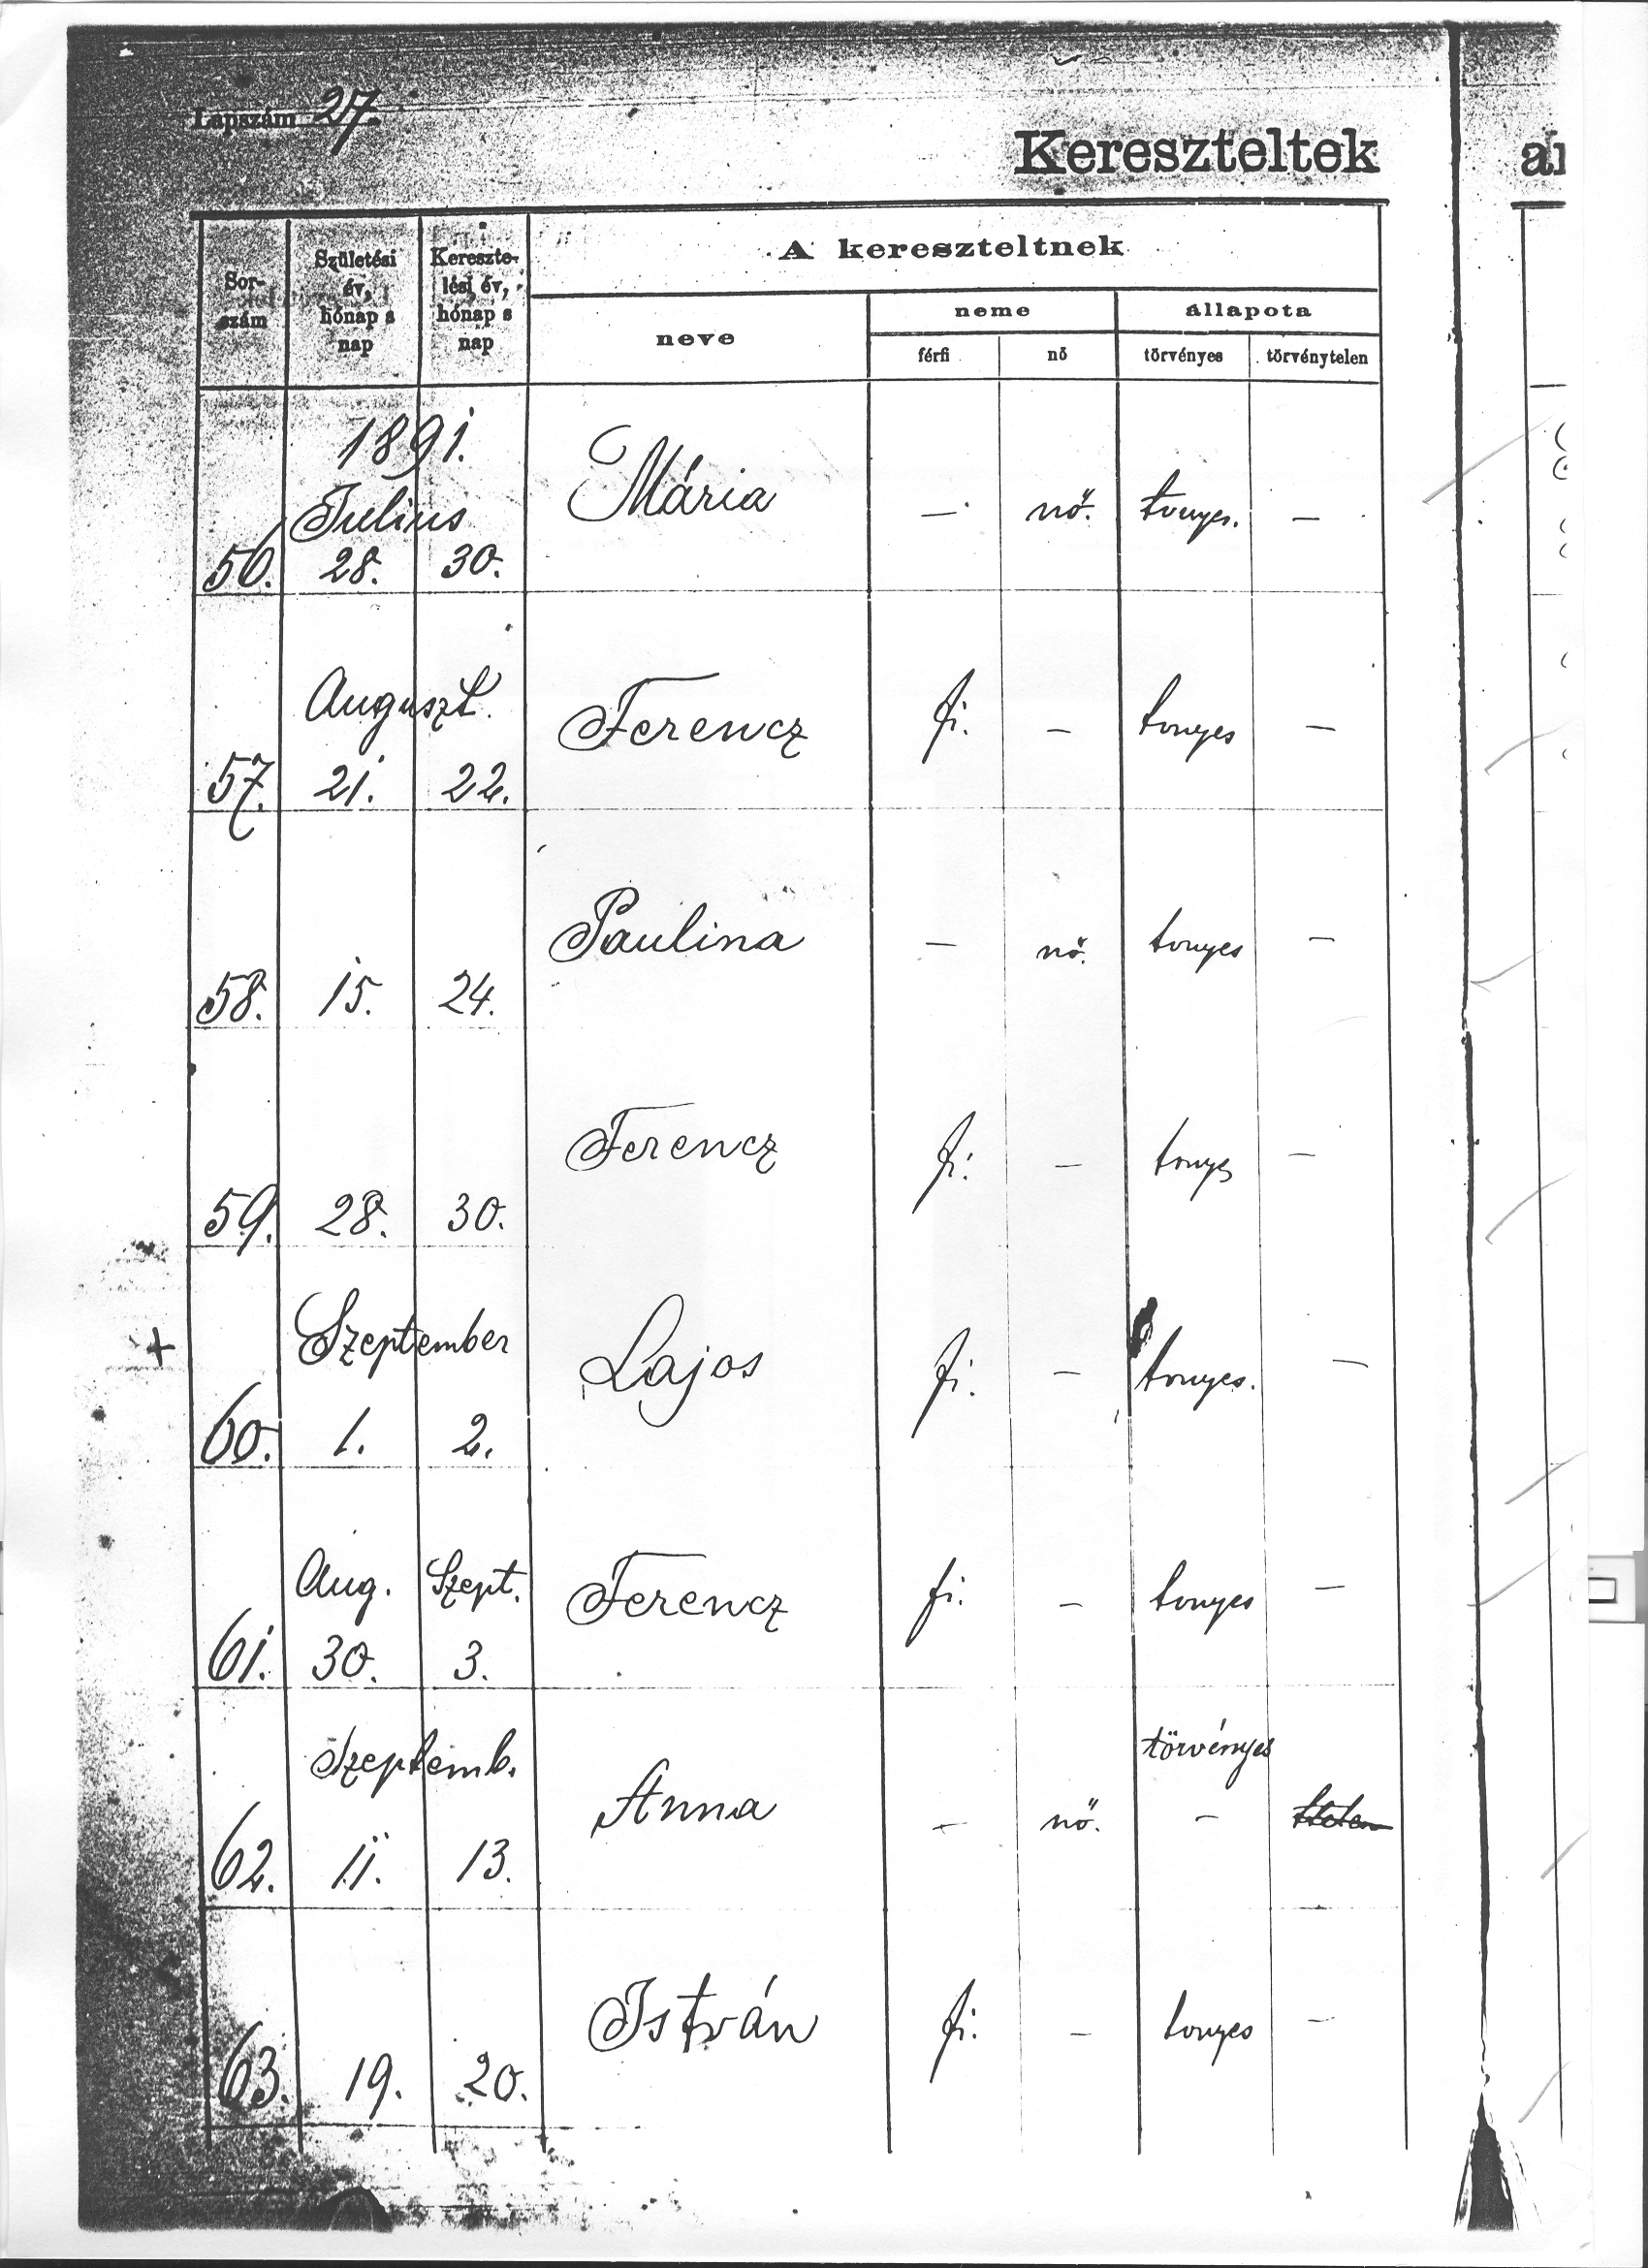 Lapszám 27.
Kereszteltek
Sor-
szám
Születési
év,
hónap s
nap
Kereszte-
lési év,
hónap s
nap
A kereszteltnek
neve
neme
állapota
férfi
nő
törvényes
törvénytelen
1891.
Julius
56. 28. 30. Mária — nő. tvnyes. —
Auguszt.
57. 21. 22. Ferencz fi. — tvnyes —
58. 15. 24. Paulina — nő. tvnyes —
59. 28. 30. Ferencz fi. — tvnyes —
+ Szeptember
60. 1. 2. Lajos fi. — tvnyes. —
Aug. Szept.
61. 30. 3. Ferencz fi. — tvnyes —
Szeptemb. törvényes
62. 11. 13. Anna — nő. —
63. 19. 20. István fi. — tvnyes —